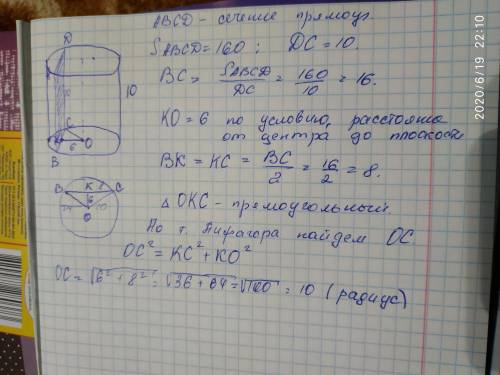 ABCD - сечение прямоуг.
SABCD = 160 ; DC = 10.
BC = SABCD / DC = 160 / 10 = 16.
KO = 6 по условию, расстояние
от центра до плоскости
BK = KC = BC / 2 = 16 / 2 = 8.
△ OKC - прямоугольный.
По т. Пифагора найдем OC.
OC² = KC² + KO²
OC = √6² + 8² = √36 + 64 = √100 = 10 (радиус)
D
10
C
6 O
B
B K 8 C
6
O
2020/6/19 22:10